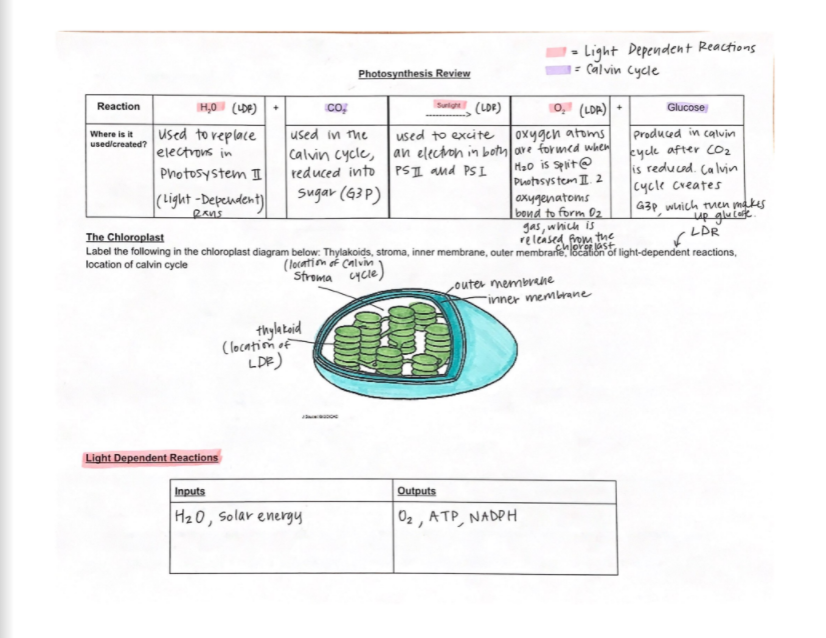 = Light Dependent Reactions
= Calvin Cycle
Photosynthesis Review
Reaction
H2O (LDR)
+
CO2
Sunlight (LDR)
O2 (LDR)
+
Glucose
Where is it
used/created?
Used to replace
electrons in
Photosystem II
(Light-Dependent)
RXNS
used in the
Calvin Cycle,
reduced into
sugar (G3P)
used to excite
an electron in both
PS II and PS I
oxygen atoms
are formed when
H2O is split @
Photosystem II. 2
oxygen atoms
bond to form O2
gas, which is
released from the
chloroplast
produced in calvin
cycle after CO2
is reduced. Calvin
cycle creates
G3P, which then makes
up glucose.
The Chloroplast
LDR
Label the following in the chloroplast diagram below: Thylakoids, stroma, inner membrane, outer membrane, location of light-dependent reactions,
location of calvin cycle
(location of Calvin
Stroma cycle)
outer membrane
inner membrane
thylakoid
(location of
LDR)
Light Dependent Reactions
Inputs
Outputs
H2O, Solar energy
O2, ATP, NADPH